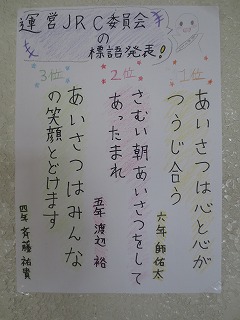 運営JRC委員会
の
標語発表!
1位
あいさつは心と心が
つうじ合う
六年 師佑太
2位
さむい朝あいさつをして
あったまれ
五年 渡辺 裕
3位
あいさつはみんな
の笑顔とどけます
四年 斉藤祐貴